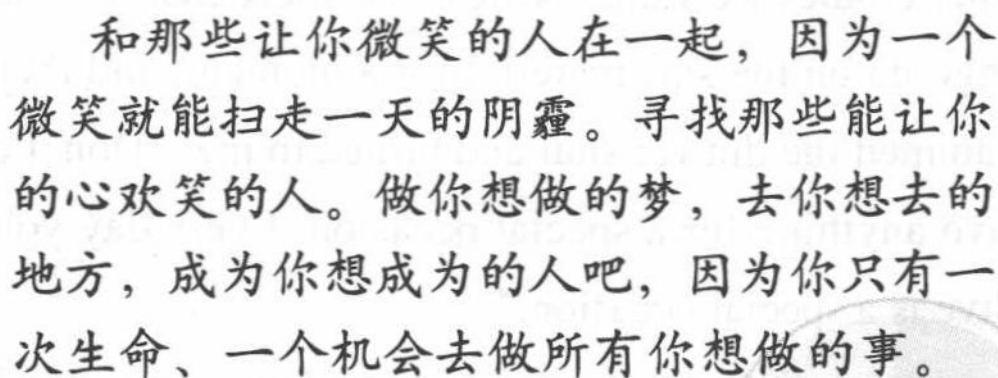 和那些让你微笑的人在一起，因为一个
微笑就能扫走一天的阴霾。寻找那些能让你
的心欢笑的人。做你想做的梦，去你想去的
地方，成为你想成为的人吧，因为你只有一
次生命、一个机会去做所有你想做的事。